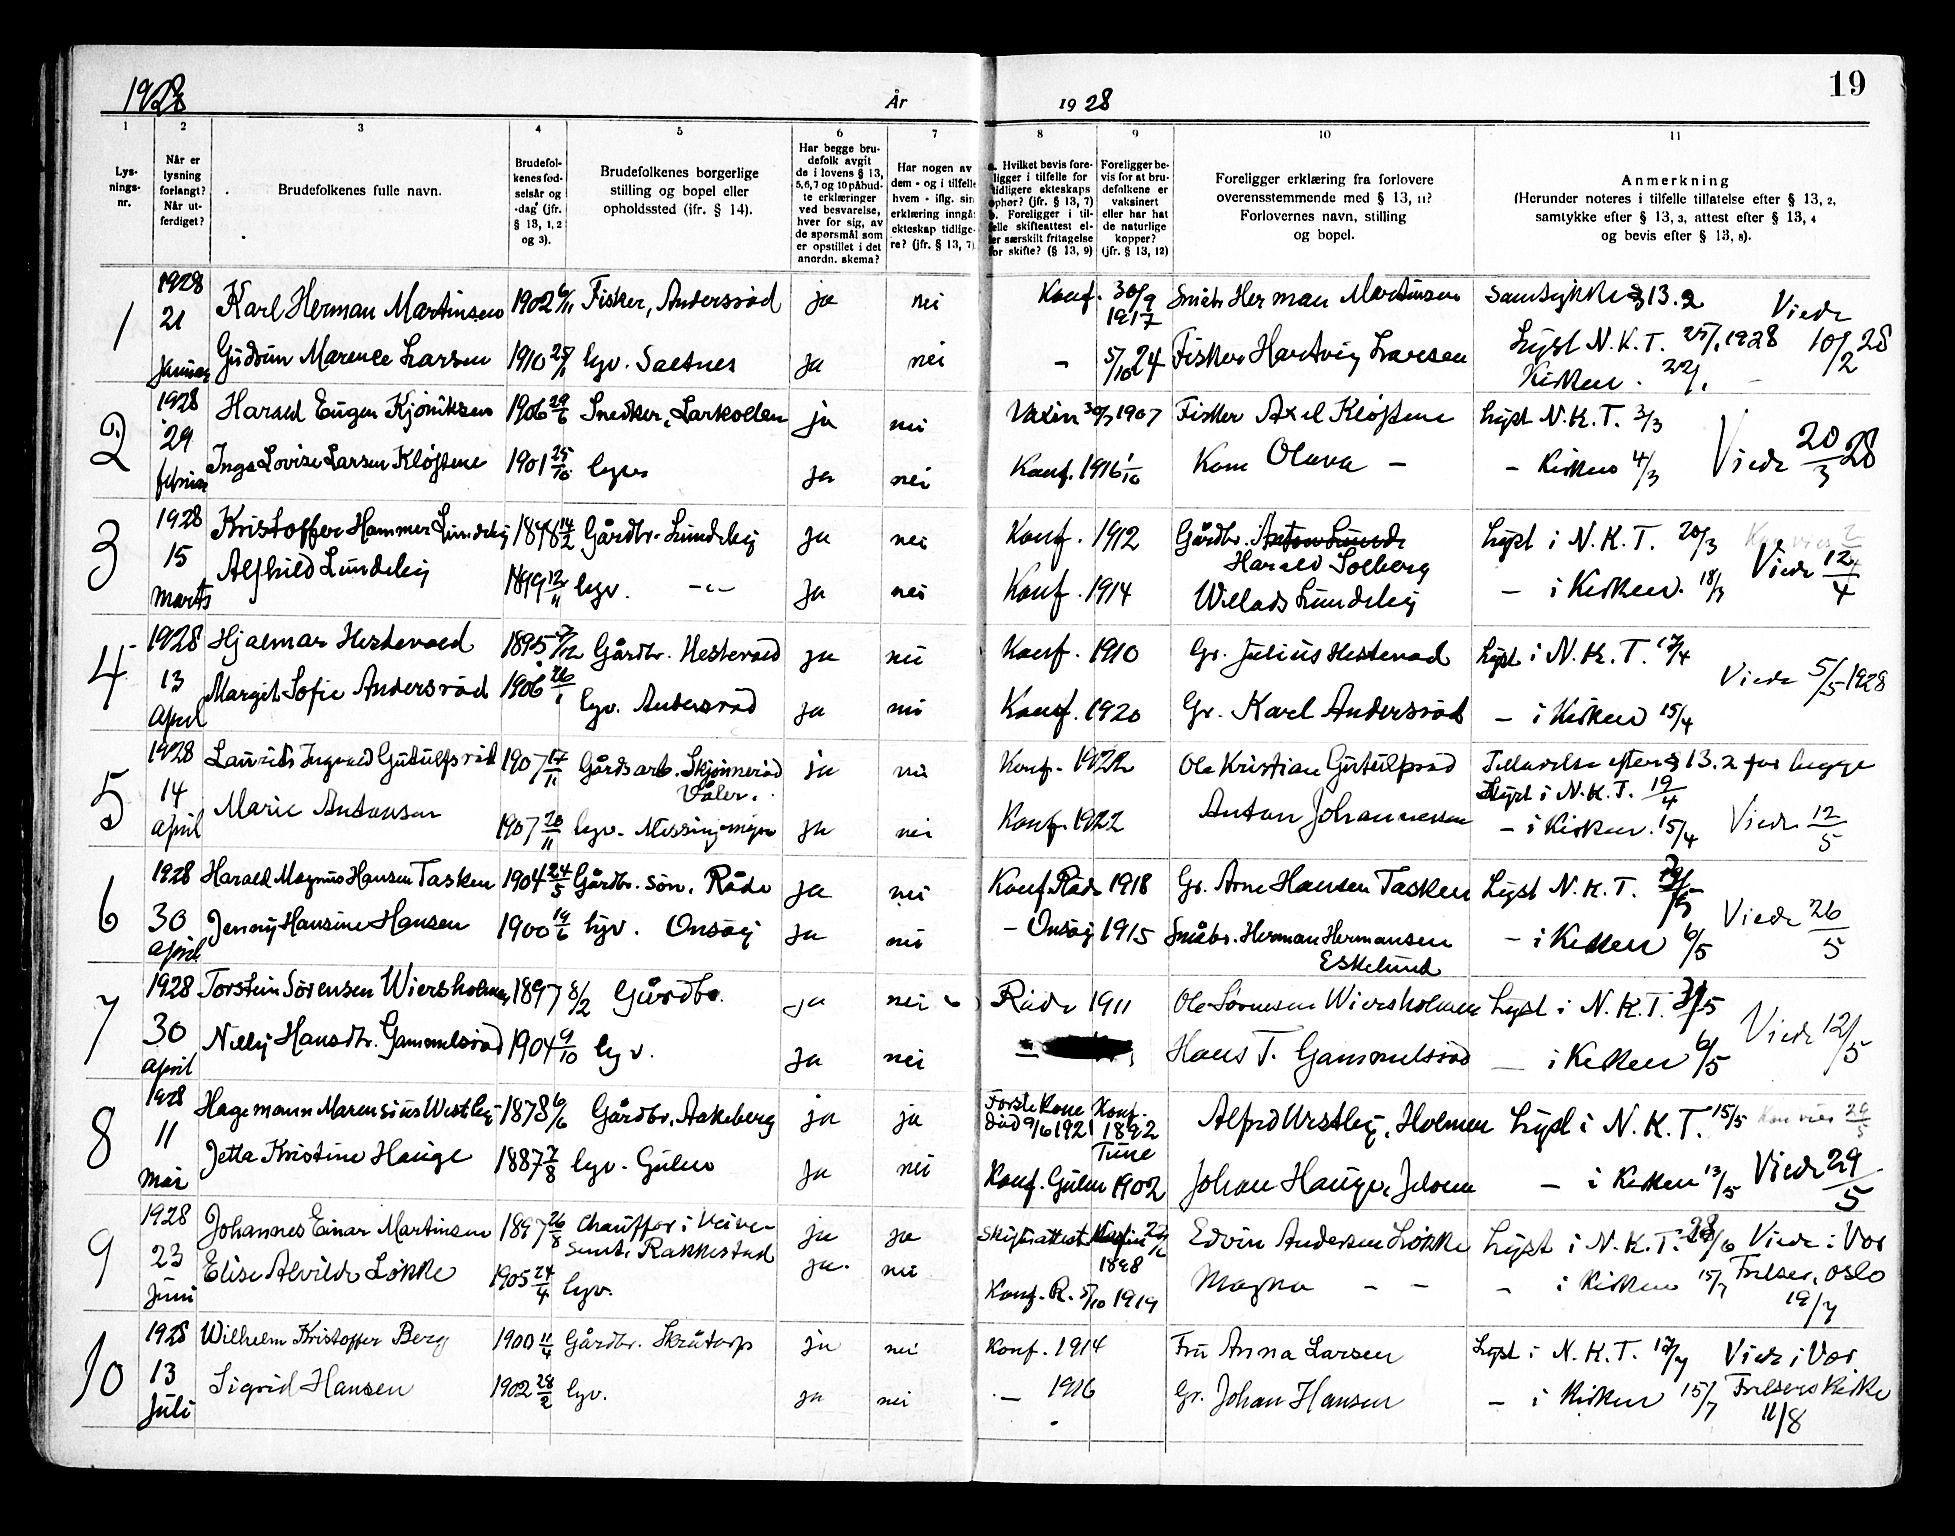 1928
År
1928
19
1
2
3
4
5
6
7
8
9
10
11
Lys-
nings-
nr.
Når er
lysning
forlangt?
Når ut-
ferdiget?
Brudefolkenes fulle navn.
Brudefol-
kenes fød-
selsår og
-dag (jfr.
§ 13, 1, 2
og 3).
Brudefolkenes borgerlige
stilling og bopel eller
opholdssted (ifr. § 14).
Har begge bru-
defolk avgit
de i lovens § 13,
5, 6, 7 og 10 påbud-
te erklæringer
ved besvarelse,
hver for sig, av
de spørsmål som
er opstillet i det
anordn. skema?
Har nogen av
dem - og i tilfelle
hvem - iflg. sin
erklæring inngå
ekteskap tidlige-
re? (jfr. § 13, 7)
a. Hvilket bevis fore-
ligger i tilfelle for
tidligere ekteskaps
ophør? (jfr. § 13, 7)
b. Foreligger i til-
felle skifteattest el-
ler særskilt fritagelse
for skifte? (§ 13, 9)
Foreligger be-
vis for at bru-
defolkene er
vaksinert
eller har hat
de naturlige
kopper?
(jfr. § 13, 12)
Foreligger erklæring fra forlovere
overensstemmende med § 13, 11?
Forlovernes navn, stilling
og bopel.
Anmerkning
(Herunder noteres i tilfelle tillatelse efter § 13, 2,
samtykke efter § 13, 3, attest efter § 13, 4
og bevis efter § 13, 8).
1 1928 21 Januar
Karl Herman Martinsen 1902 6/11 Fisker, Andersrød ja nei Konf. 30/9 1917 Småbr. Herman Martinsen Samtykke § 13.2
Gudrun Marence Larsen 1910 25/1 hgv. Saltnes ja nei - 5/10 24 Fisker Hartvig Larsen Lyst N.K.T. 25/1 1928
Kirken. 22/1 - Viede 10/2 28
2 1928 29 februar
Harald Eugen Kjøniksen 1906 29/6 Snedker, Larkollen ja nei Vaxin 30/3 1907 Fisker Axel Kløftene Lyst N.K.T. 3/3
Inga Lovise Larsen Kløftene 1901 25/10 hgv. ja nei Konf. 1916 1/10 Kone Olava - - Kirken 4/3 Viede 20/3 28
3 1928 15 marts
Kristoffer Hammer Lundeby 1898 14/2 Gårdbr. Lundeby ja nei Konf. 1912 Gårdbr. Harald Solberg Lyst i N.K.T. 20/3
Alfhild Lundeby 1899 12/11 hgv. -"- ja nei Konf. 1914 Willads Lundeby - i Kirken. 18/3 Viede 12/4
4 1928 13 April
Hjalmar Hesterød 1895 7/12 Gårdbr. Hesterød ja nei Konf. 1910 Gr. Julius Hesterød Lyst i N.K.T. 17/4
Margit Sofie Andersrød 1906 26/1 hgv. Andersrød ja nei Konf. 1920 Gr. Karl Andersrød - i Kirken 15/4 Viede 5/5 1928
5 1928 14 April
Laurits Ingvald Gutulfsrød 1907 17/11 Gårdsarb. Skjønnerød Våler. ja nei Konf. 1922 Ole Kristian Gutulfsrød Tillatelse efter § 13.2 for begge
Lyst i N.K.T. 19/4
Marie Antonsen 1907 20/11 hgv. Missingmyr ja nei Konf. 1922 Anton Johannessen - i Kirken. 15/4 Viede 12/5
6 1928 30 April
Harald Magnus Hansen Tasken 1904 24/5 Gårdbr. søn, Råde ja nei Konf. Råde 1918 Gr. Arne Hansen Tasken Lyst N.K.T.
Jenny Hansine Hansen 1900 19/6 hgv. Onsøy ja nei - Onsøy 1915 Småbr. Herman Hermansen Eskelund - i Kirken 6/5 Viede 26/5
7 1928 30 April
Torstein Sørensen Wiersholmen 1897 8/2 Gårdbr. ja nei Råde 1911 Ole Sørensen Wiersholmen Lyst i N.K.T.
Nelly Hansdtr. Gammelsrød 1904 9/10 hgv. ja nei - Hans T. Gammelsrød - i Kirken 6/5 Viede 12/5
8 1928 11 mai
Hagemann Marensius Westby 1878 6/6 Gårdbr, Aakeberg ja ja Første Kone død 9/6 1921 Konf. 1892 Tune Alfred Westby, Holmen Lyst i N.K.T. 15/5
Jetta Kristine Hauge 1887 7/8 hgv. Gulen ja nei Konf. Gulen 1902 Johan Hauge, Jeløen - i Kirken 13/5 Viede 29/5
9 1928 23 Juni
Johannes Einar Martinsen 1897 26/8 Chauffør i Rakkestad ja ja Skifteattest 1898 Edvin Andersen Løkke Lyst i N.K.T. 28/6 Viede i Vor
Elise Alvilde Løkke 1905 24/4 hgv. ja. nei Konf. R. 5/10 1919 Magna - - - i Kirken 15/7 Frelser, Oslo 19/7
10 1928 13 Juli
Wilhelm Kristoffer Berg 1900 11/4 Gårdbr. Skråtorp ja nei Konf. 1914 Fru Anna Larsen Lyst i N.K.T. 17/7 Viede i Vor
Sigrid Hansen 1902 28/2 hgv. ja nei - 1916 Gr. Johan Hansen - i Kirken 15/7 Frelsers Kirke 11/8